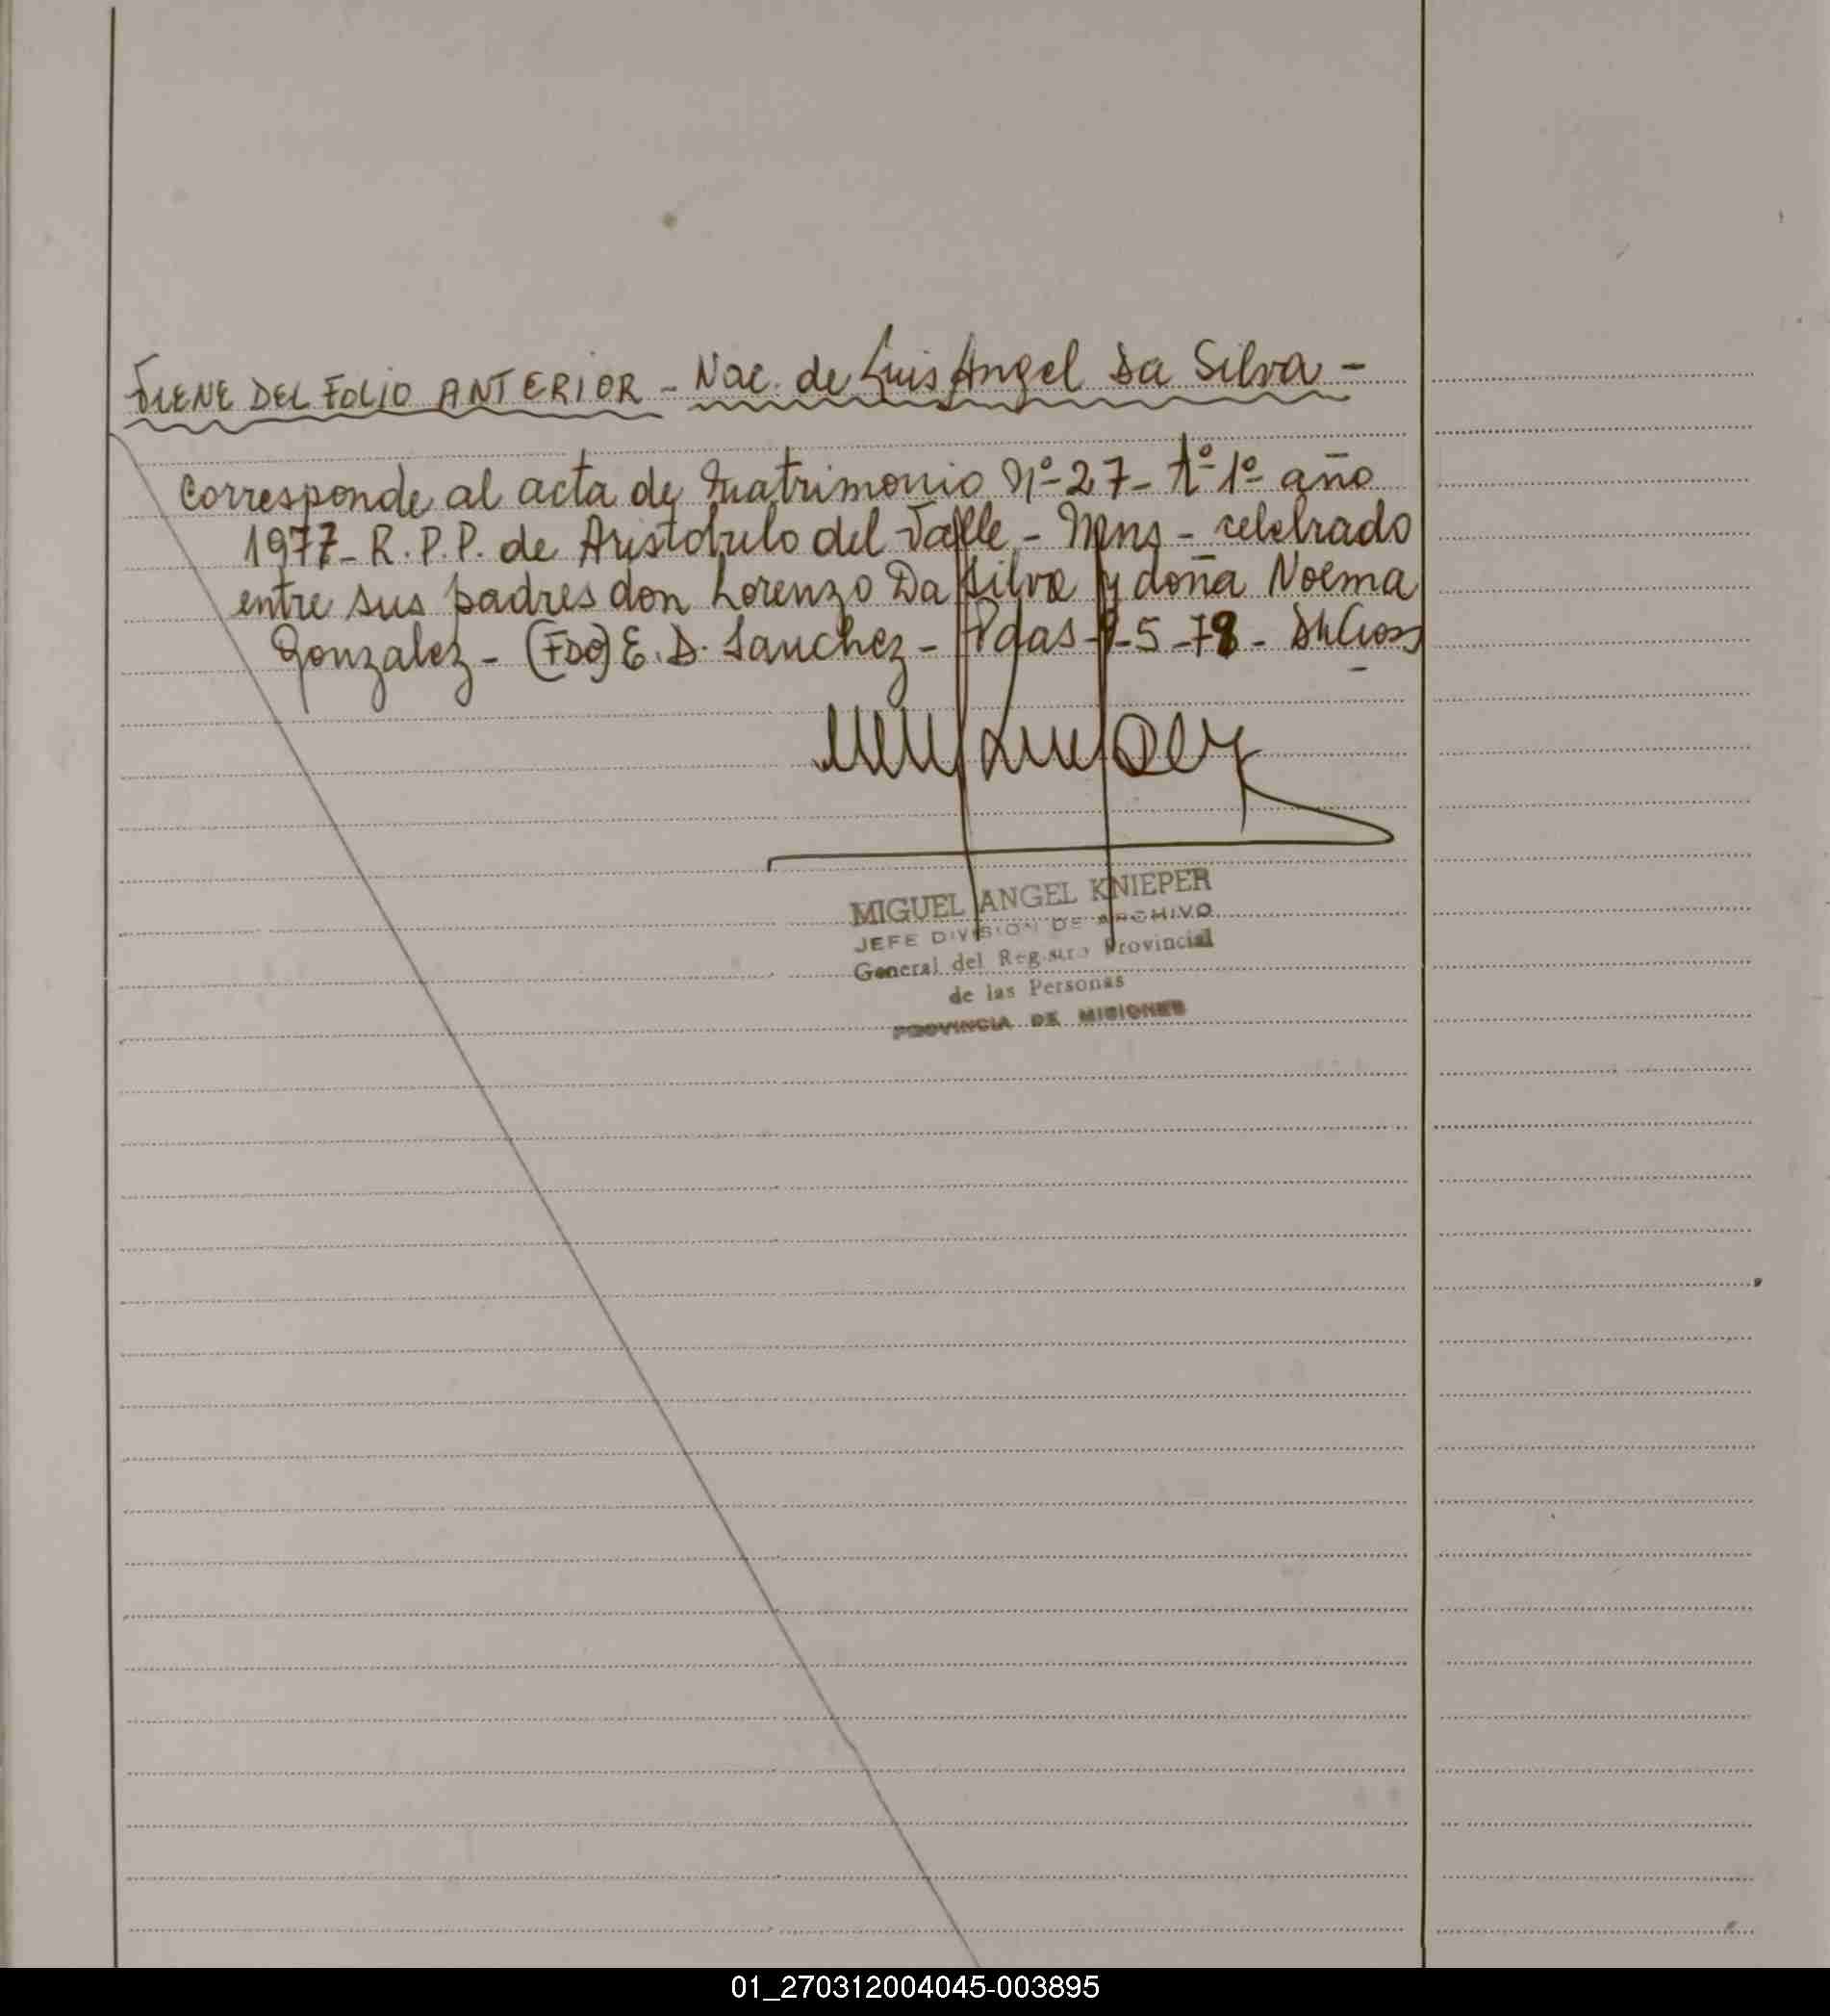 VIENE DEL FOLIO ANTERIOR - Nac. de Luis Angel Da Silva -
Corresponde al acta de Matrimonio Nº 27 - tº 1º año
1977 - R.P.P. de Aristobulo del Valle - Mnes - celebrado
entre sus padres don Lorenzo Da Silva y doña Noema
Gonzalez - (FDO) E. D. Sanchez - Pdas - -5-78 -
MIGUEL ANGEL KNIEPER
JEFE DIVISION DE ARCHIVO
General del Registro Provincial
de las Personas
PROVINCIA DE MISIONES
01_270312004045-003895